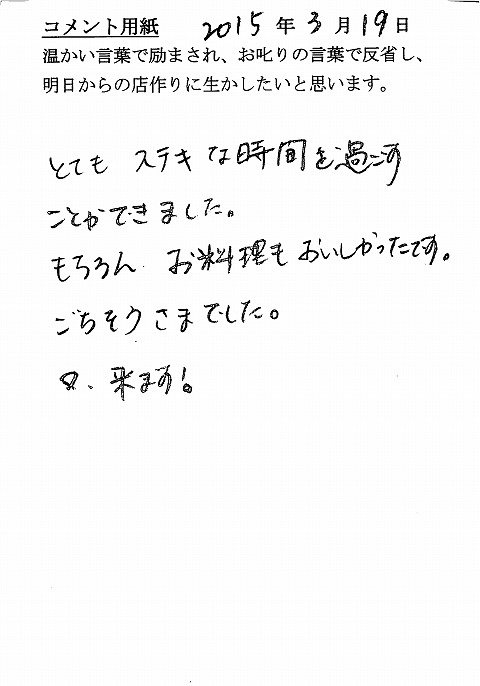 コメント用紙 2015年3月19日
温かい言葉で励まされ、お叱りの言葉で反省し、
明日からの店作りに生かしたいと思います。
とても ステキな時間を過ごす
ことができました。
もちろん お料理もおいしかったです。
ごちそうさまでした。
又、来ます!。